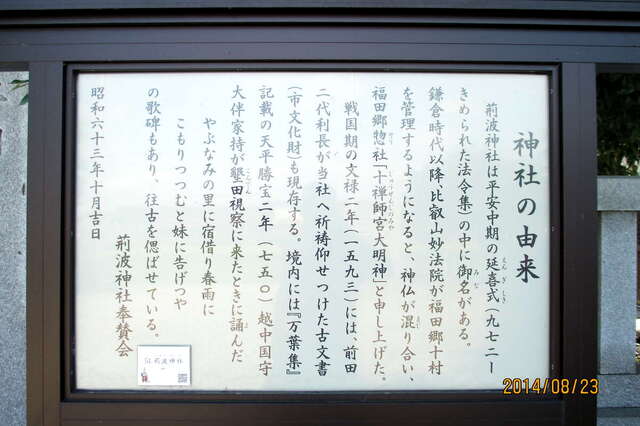 神社の由来
荊波神社は平安中期の延喜式(九七二ー
きめられた法令集)の中に御名がある。
鎌倉時代以降、比叡山妙法院が福田郷十村
を管理するようになると、神仏が混り合い、
福田郷惣社「十禅師宮大明神」と申し上げた。
戦国期の文禄二年(一五九三)には、前田
二代利長が当社へ祈祷仰せつけた古文書
(市文化財)も現存する。境内には『万葉集』
記載の天平勝宝二年(七五〇)越中国守
大伴家持が墾田視察に来たときに誦んだ
やぶなみの里に宿借り春雨に
こもりつつむと妹に告げつや
の歌碑もあり、往古を偲ばせている。
昭和六十三年十月吉日
荊波神社奉賛会
51 荊波神社
2014/08/23